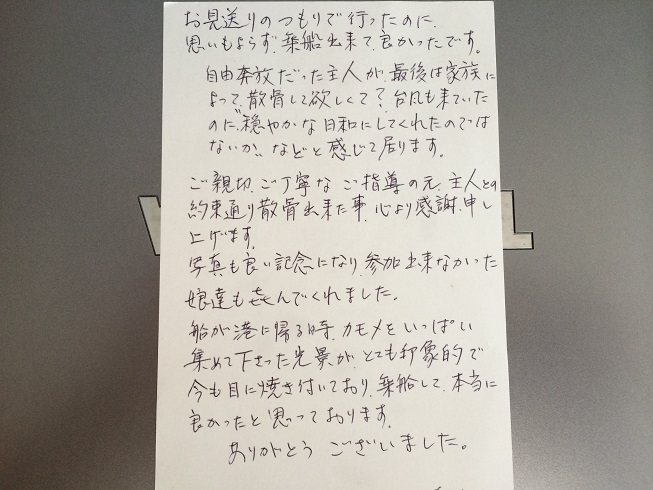 お見送りのつもりで行ったのに、
思いもよらず、乗船出来て、良かったです。
自由奔放だった主人が、最後は家族に
よって、散骨して欲しくて？台風も来ていた
のに、“穏やかな日和にしてくれたのでは
ないか„などと感じて居ります。
ご親切、ご丁寧なご指導の元、主人との
約束通り散骨出来た事、心より感謝、申し
上げます。
写真も良い記念になり、参加出来なかった
娘達も㐂んでくれました。
船が港に帰る時、カモメをいっぱい
集めて下さった光景が、とても印象的で
今も目に焼き付いており、乗船して、本当に
良かったと思っております。
ありがとうございました。